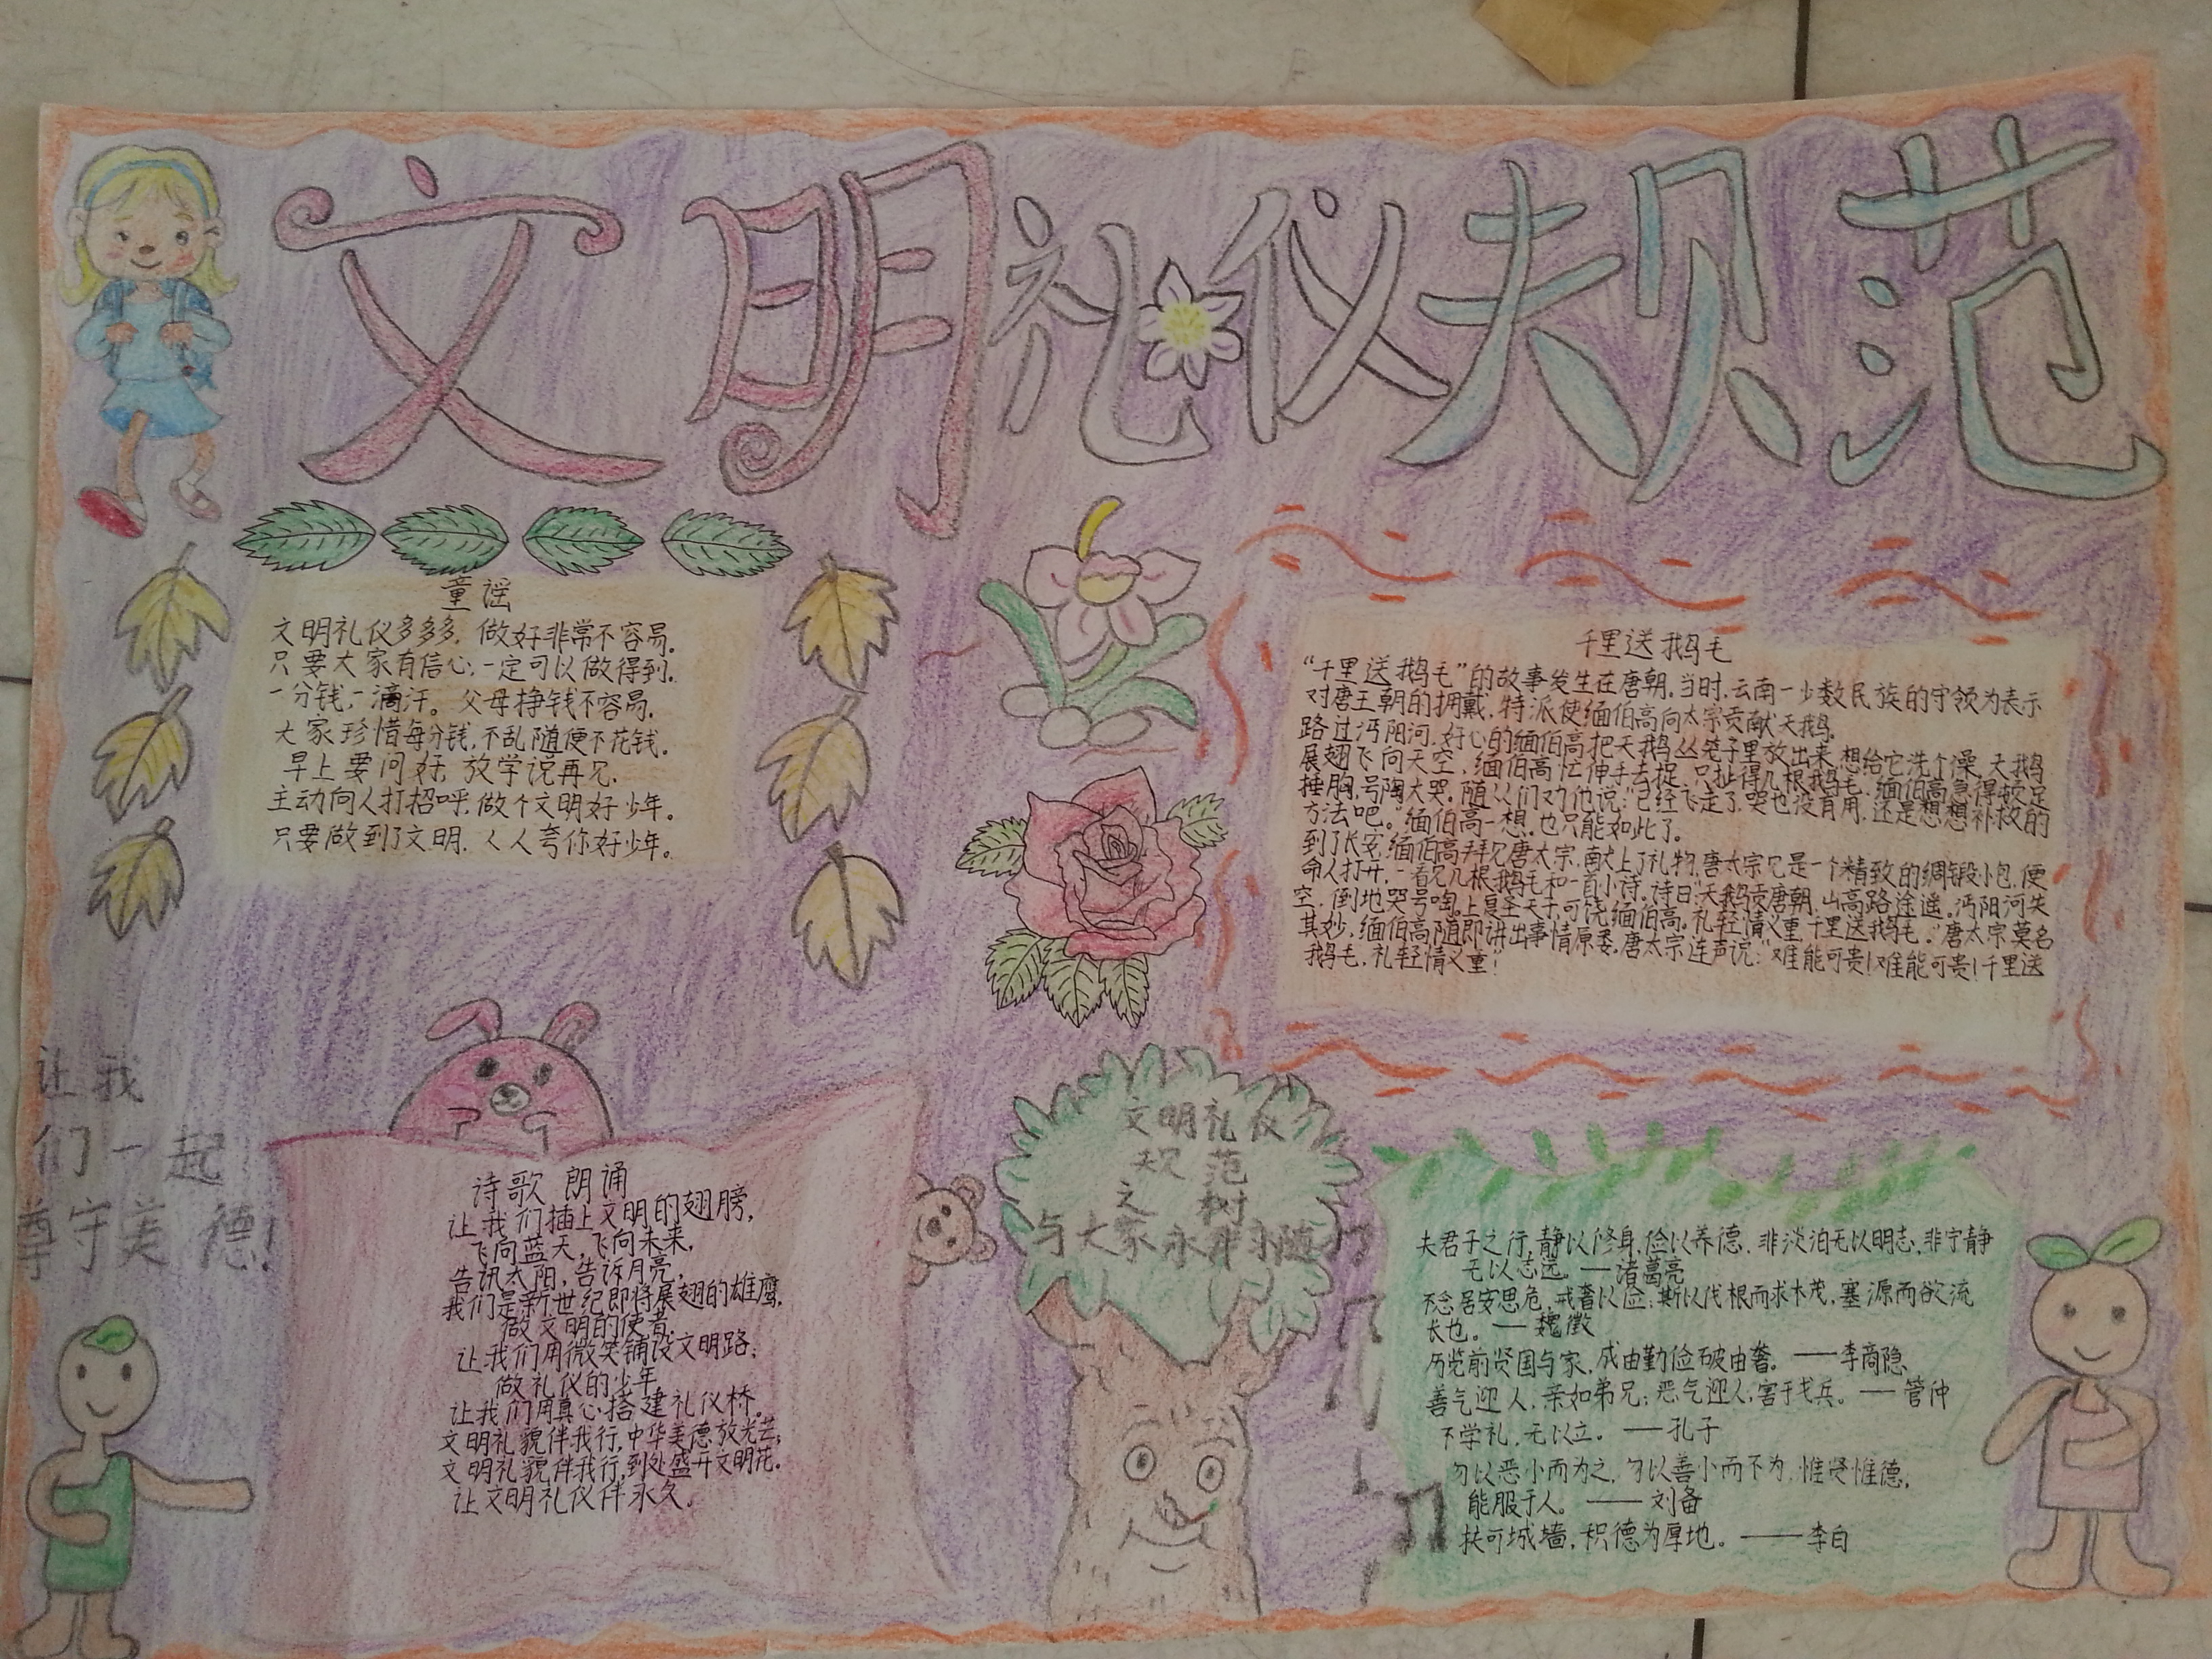 文明礼仪规范
童谣
文明礼仪多多多，做好非常不容易。
只要大家有信心，一定可以做得到。
一分钱，一滴汗。父母挣钱不容易。
大家珍惜每分钱，不乱随便不花钱。
早上要问好，放学说再见。
主动向人打招呼，做个文明好少年。
只要做到了文明，人人夸你好少年。
千里送鹅毛
“千里送鹅毛”的故事发生在唐朝。当时，云南一少数民族的守领为表示
对唐王朝的拥戴，特派使缅伯高向太宗贡献天鹅。
路过沔阳河，好心的缅伯高把天鹅丛笼子里放出来，想给它洗个澡，天鹅
展翅飞向天空，缅伯高忙伸手去捉，只扯得几根鹅毛。缅伯高急得顿足
捶胸，号陶大哭。随从们劝他说：“已经飞走了，哭也没有用，还是想想补救的
方法吧。”缅伯高一想，也只能如此了。
到了长安，缅伯高拜见唐太宗，献上了礼物，唐太宗见是一个精致的绸锻小包，便
命人打开，一看见几根鹅毛和一首小诗。诗曰“天鹅贡唐朝，山高路途遥。沔阳河失
空，倒地哭号啕。上复圣天子，可饶缅伯高。礼轻情义重，千里送鹅毛。”唐太宗莫名
其妙，缅伯高随即讲出事情原委。唐太宗连声说：“难能可贵！难能可贵！千里送
鹅毛，礼轻情义重！”
让我
们一起
尊守美德！
诗歌 朗诵
让我们插上文明的翅膀，
飞向蓝天，飞向未来，
告讯太阳，告诉月亮，
我们是新世纪即将展翅的雄鹰，
做文明的使者，
让我们用微笑铺设文明路；
做礼仪的少年，
让我们用真心搭建礼仪桥。
文明礼貌伴我行，中华美德放光芒；
文明礼貌伴我行，到处盛开文明花。
让文明礼仪伴永久。
文明礼仪
规范
之树
与大家永伴
夫君子之行，静以修身，俭以养德，非淡泊无以明志，非宁静
无以志远。——诸葛亮
不念居安思危，戒奢以俭；斯以伐根而求木茂，塞源而欲流
长也。——魏徵
历览前贤国与家，成由勤俭破由奢。——李商隐
善气迎人，亲如弟兄；恶气迎人，害于戈兵。——管仲
不学礼，无以立。——孔子
勿以恶小而为之，勿以善小而不为，惟贤惟德，
能服于人。——刘备
扶可城墙，积德为厚地。——李白